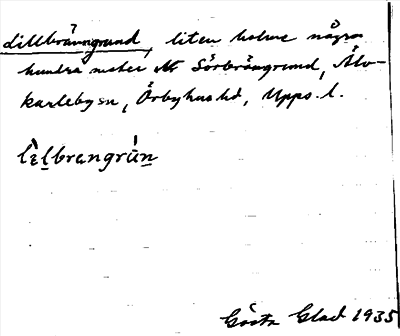 Lillbränngrund, liten holme några
hundra meter N Sörbrängrund, Älv-
karlebysn, Örbyhus hd, Upps. l.
lèlbrangrún
Gösta Glad 1935